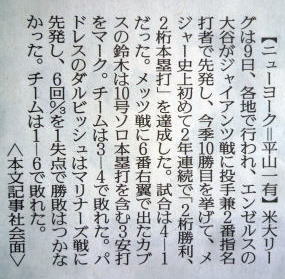 【ニューヨーク=平山一有】米大リー
グは9日、各地で行われ、エンゼルスの
大谷がジャイアンツ戦に投手兼2番指名
打者で先発し、今季10勝目を挙げて、メ
ジャー史上初めて2年連続で「2桁勝利、
2桁本塁打」を達成した。試合は4―1
だった。メッツ戦に6番右翼で出たカブ
スの鈴木は10号ソロ本塁打を含む3安打
をマーク。チームは3―4で敗れた。パ
ドレスのダルビッシュはマリナーズ戦に
先発し、6回⅔を1失点で勝敗はつかな
かった。チームは1―6で敗れた。
〈本文記事社会面〉